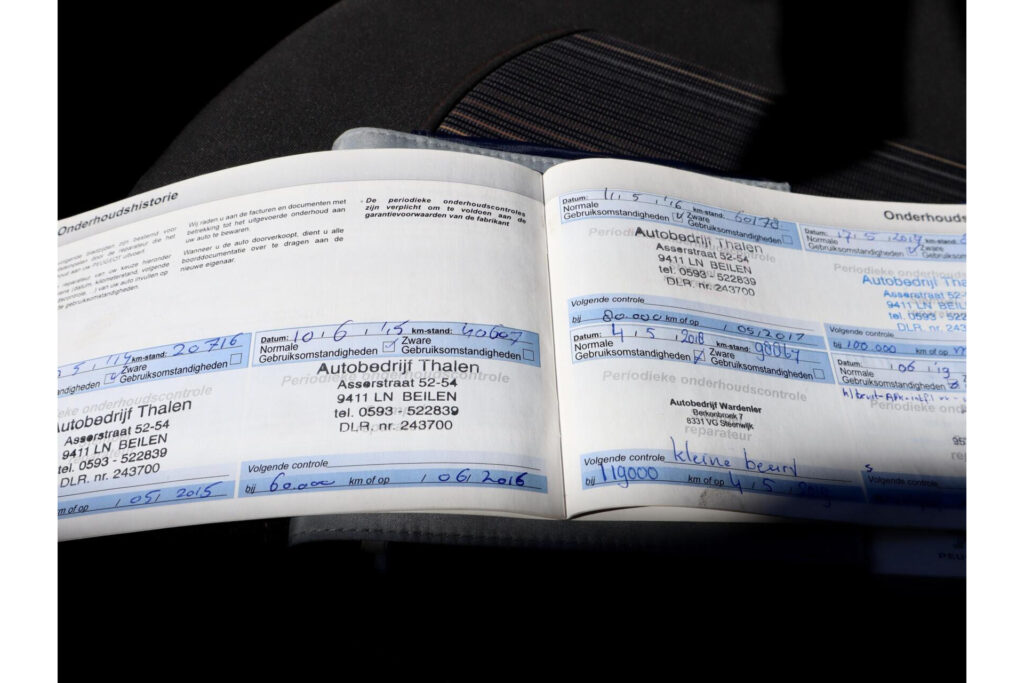 Onderhoudshistorie
Wij raden u aan de facturen en documenten met
betrekking tot het uitgevoerde onderhoud aan
uw auto te bewaren.
Wanneer u de auto doorverkoopt, dient u alle
boorddocumentatie over te dragen aan de
nieuwe eigenaar.
De periodieke onderhoudscontroles
zijn verplicht om te voldoen aan de
garantievoorwaarden van de fabrikant
km-stand: 20716
Zware
Gebruiksomstandigheden
onderhoudscontrole
Autobedrijf Thalen
Asserstraat 52-54
9411 LN BEILEN
tel. 0593 - 522839
DLR. nr. 243700
km of op 05 2015
Datum: 10 6 '15 km-stand: 40607
Normale
Gebruiksomstandigheden
Zware
Gebruiksomstandigheden
Periodieke onderhoudscontrole
Autobedrijf Thalen
Asserstraat 52-54
9411 LN BEILEN
tel. 0593 - 522839
DLR. nr. 243700
Volgende controle
bij 60.000 km of op 06 2016
Datum: 11 5 '16 km-stand: 60178
Normale
Gebruiksomstandigheden
Zware
Gebruiksomstandigheden
Autobedrijf Thalen
Asserstraat 52-54
9411 LN BEILEN
tel. 0593 - 522839
DLR. nr. 243700
Volgende controle
bij 80.000 km of op 05 2017
Datum: 4 5 2018 km-stand: 98067
Normale
Gebruiksomstandigheden
Zware
Gebruiksomstandigheden
Periodieke onderhoudscontrole
Autobedrijf Wardenier
Berkenbroek 7
8331 VG Steenwijk
reparateur
Volgende controle kleine beurt
bij 119000 km of op 4 5 2019
Datum: 17 5 2017 km-stand:
Normale
Gebruiksomstandigheden
Zware
Periodieke
Autobedrijf
Asserstraat
9411 LN
tel. 0593
DLR. nr.
Volgende controle
bij 100 000 km of op
Datum: 06 19
Normale
Gebruiksomstandigheden
Periodieke
Volgende controle